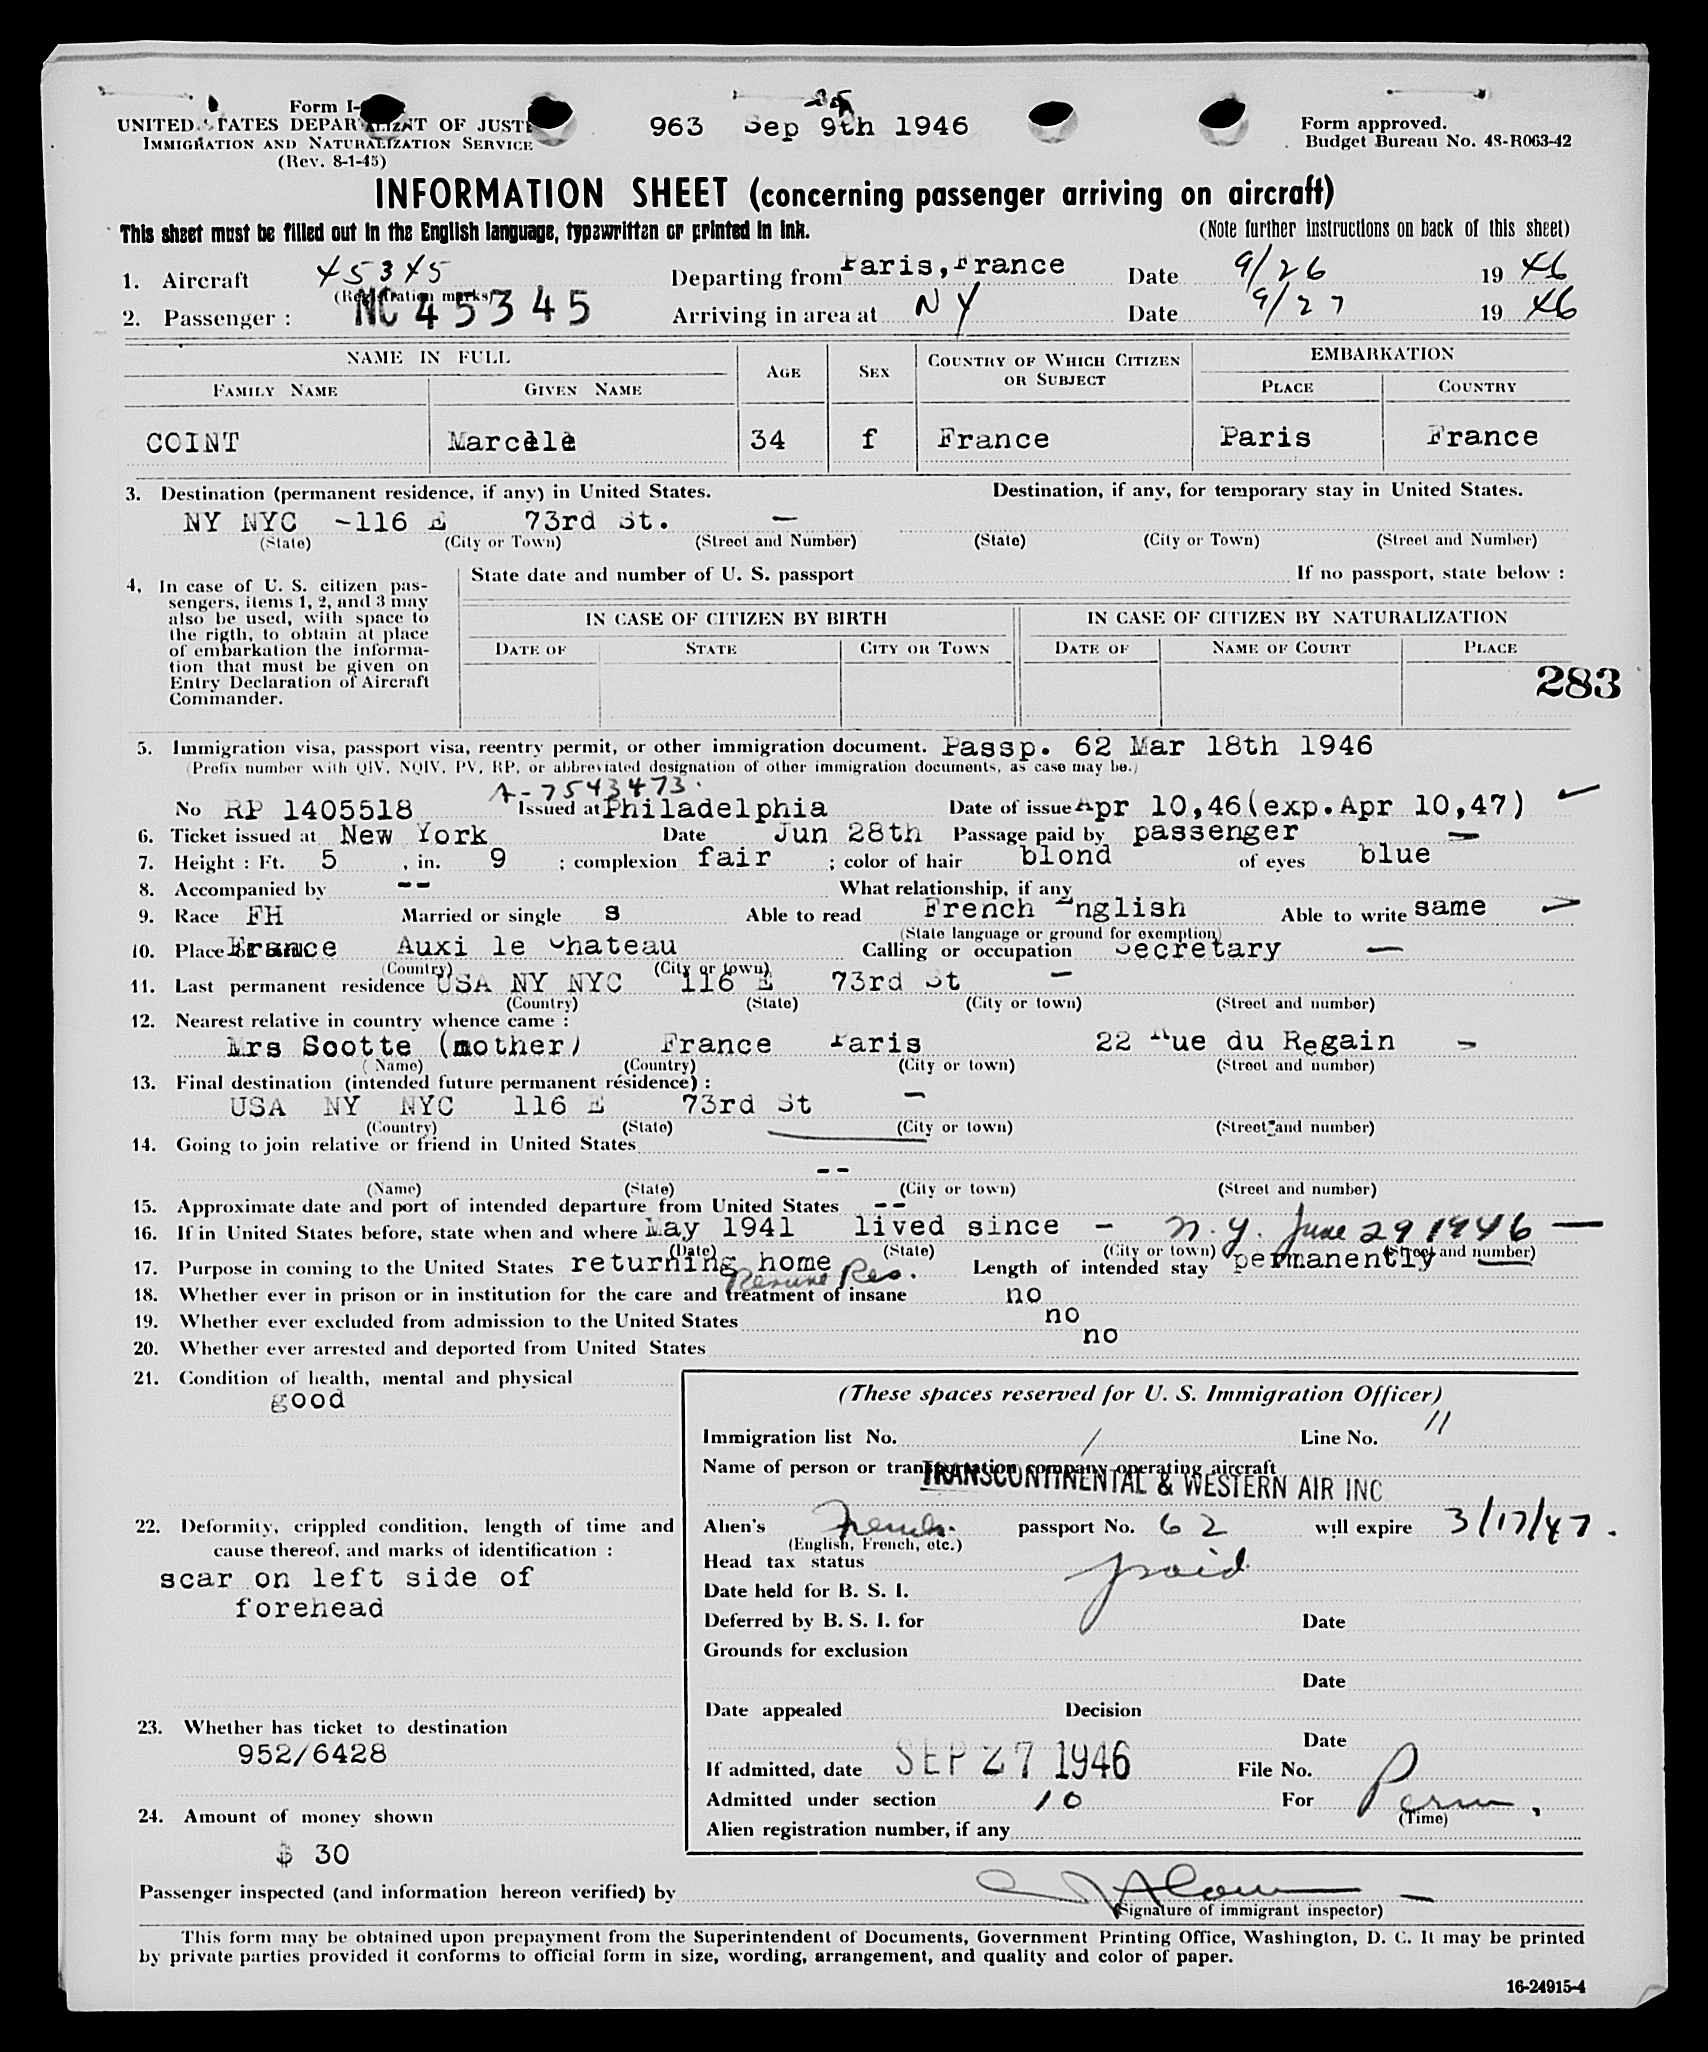 Form I-
UNITED STATES DEPARTMENT OF JUSTI
IMMIGRATION AND NATURALIZATION SERVICE
(Rev. 8-1-45)
963 Sep 9th 1946
Form approved.
Budget Bureau No. 43-R063-42
INFORMATION SHEET (concerning passenger arriving on aircraft)
This sheet must be filled out in the English language, typewritten or printed in ink.
(Note further instructions on back of this sheet)
1. Aircraft 45345 Departing from Paris, France Date 9/26 19 46
(Registration marks)
NC 45345
2. Passenger : Arriving in area at NY Date 9/27 19 46
NAME IN FULL AGE SEX COUNTRY OF WHICH CITIZEN OR SUBJECT EMBARKATION
FAMILY NAME GIVEN NAME PLACE COUNTRY
COINT Marcèle 34 f France Paris France
3. Destination (permanent residence, if any) in United States. Destination, if any, for temporary stay in United States.
NY NYC -116 E 73rd St. —
(State) (City or Town) (Street and Number) (State) (City or Town) (Street and Number)
4. In case of U. S. citizen pas-
sengers, items 1, 2, and 3 may
also be used, with space to
the rigth, to obtain at place
of embarkation the informa-
tion that must be given on
Entry Declaration of Aircraft
Commander.
State date and number of U. S. passport If no passport, state below :
IN CASE OF CITIZEN BY BIRTH IN CASE OF CITIZEN BY NATURALIZATION
DATE OF STATE CITY OR TOWN DATE OF NAME OF COURT PLACE
283
5. Immigration visa, passport visa, reentry permit, or other immigration document. Passp. 62 Mar 18th 1946
(Prefix number with QIV, NQIV, PV, RP, or abbreviated designation of other immigration documents, as case may be.)
A-7543473.
No RP 1405518 Issued at Philadelphia Date of issue Apr 10,46(exp.Apr 10,47)
6. Ticket issued at New York Date Jun 28th Passage paid by passenger —
7. Height : Ft. 5 , in. 9 ; complexion fair ; color of hair blond of eyes blue
8. Accompanied by -- What relationship, if any
9. Race FH Married or single s Able to read French English Able to write same
(State language or ground for exemption)
10. Place France Auxi le Chateau Calling or occupation Secretary —
(Country) (City or town)
11. Last permanent residence USA NY NYC 116 E 73rd St —
(Country) (State) (City or town) (Street and number)
12. Nearest relative in country whence came :
Mrs Scotte (mother) France Paris 22 Rue du Regain -
(Name) (Country) (City or town) (Street and number)
13. Final destination (intended future permanent résidence) :
USA NY NYC 116 E 73rd St —
(Country) (State) (City or town) (Street and number)
14. Going to join relative or friend in United States
--
(Name) (State) (City or town) (Street and number)
15. Approximate date and port of intended departure from United States --
16. If in United States before, state when and where May 1941 lived since - N.Y. June 29 1946 —
(Date) (State) (City or town) (Street and number)
17. Purpose in coming to the United States returning home Length of intended stay permanently
Resume Res.
18. Whether ever in prison or in institution for the care and treatment of insane no
19. Whether ever excluded from admission to the United States no
20. Whether ever arrested and deported from United States no
21. Condition of health, mental and physical
good
(These spaces reserved for U. S. Immigration Officer)
Immigration list No. 1 Line No. 11
Name of person or transportation company operating aircraft
TRANSCONTINENTAL & WESTERN AIR INC
22. Deformity, crippled condition, length of time and
cause thereof, and marks of identification :
scar on left side of
forehead
Alien's French passport No. 62 will expire 3/17/47.
(English, French, etc.)
Head tax status paid
Date held for B. S. I.
Deferred by B. S. I. for Date
Grounds for exclusion
Date
Date appealed Decision
Date
23. Whether has ticket to destination
952/6428
If admitted, date SEP 27 1946 File No.
Admitted under section 10 For Perm.
(Time)
Alien registration number, if any
24. Amount of money shown
$ 30
Passenger inspected (and information hereon verified) by
(Signature of immigrant inspector)
This form may be obtained upon prepayment from the Superintendent of Documents, Government Printing Office, Washington, D. C. It may be printed
by private parties provided it conforms to official form in size, wording, arrangement, and quality and color of paper.
16-24915-4